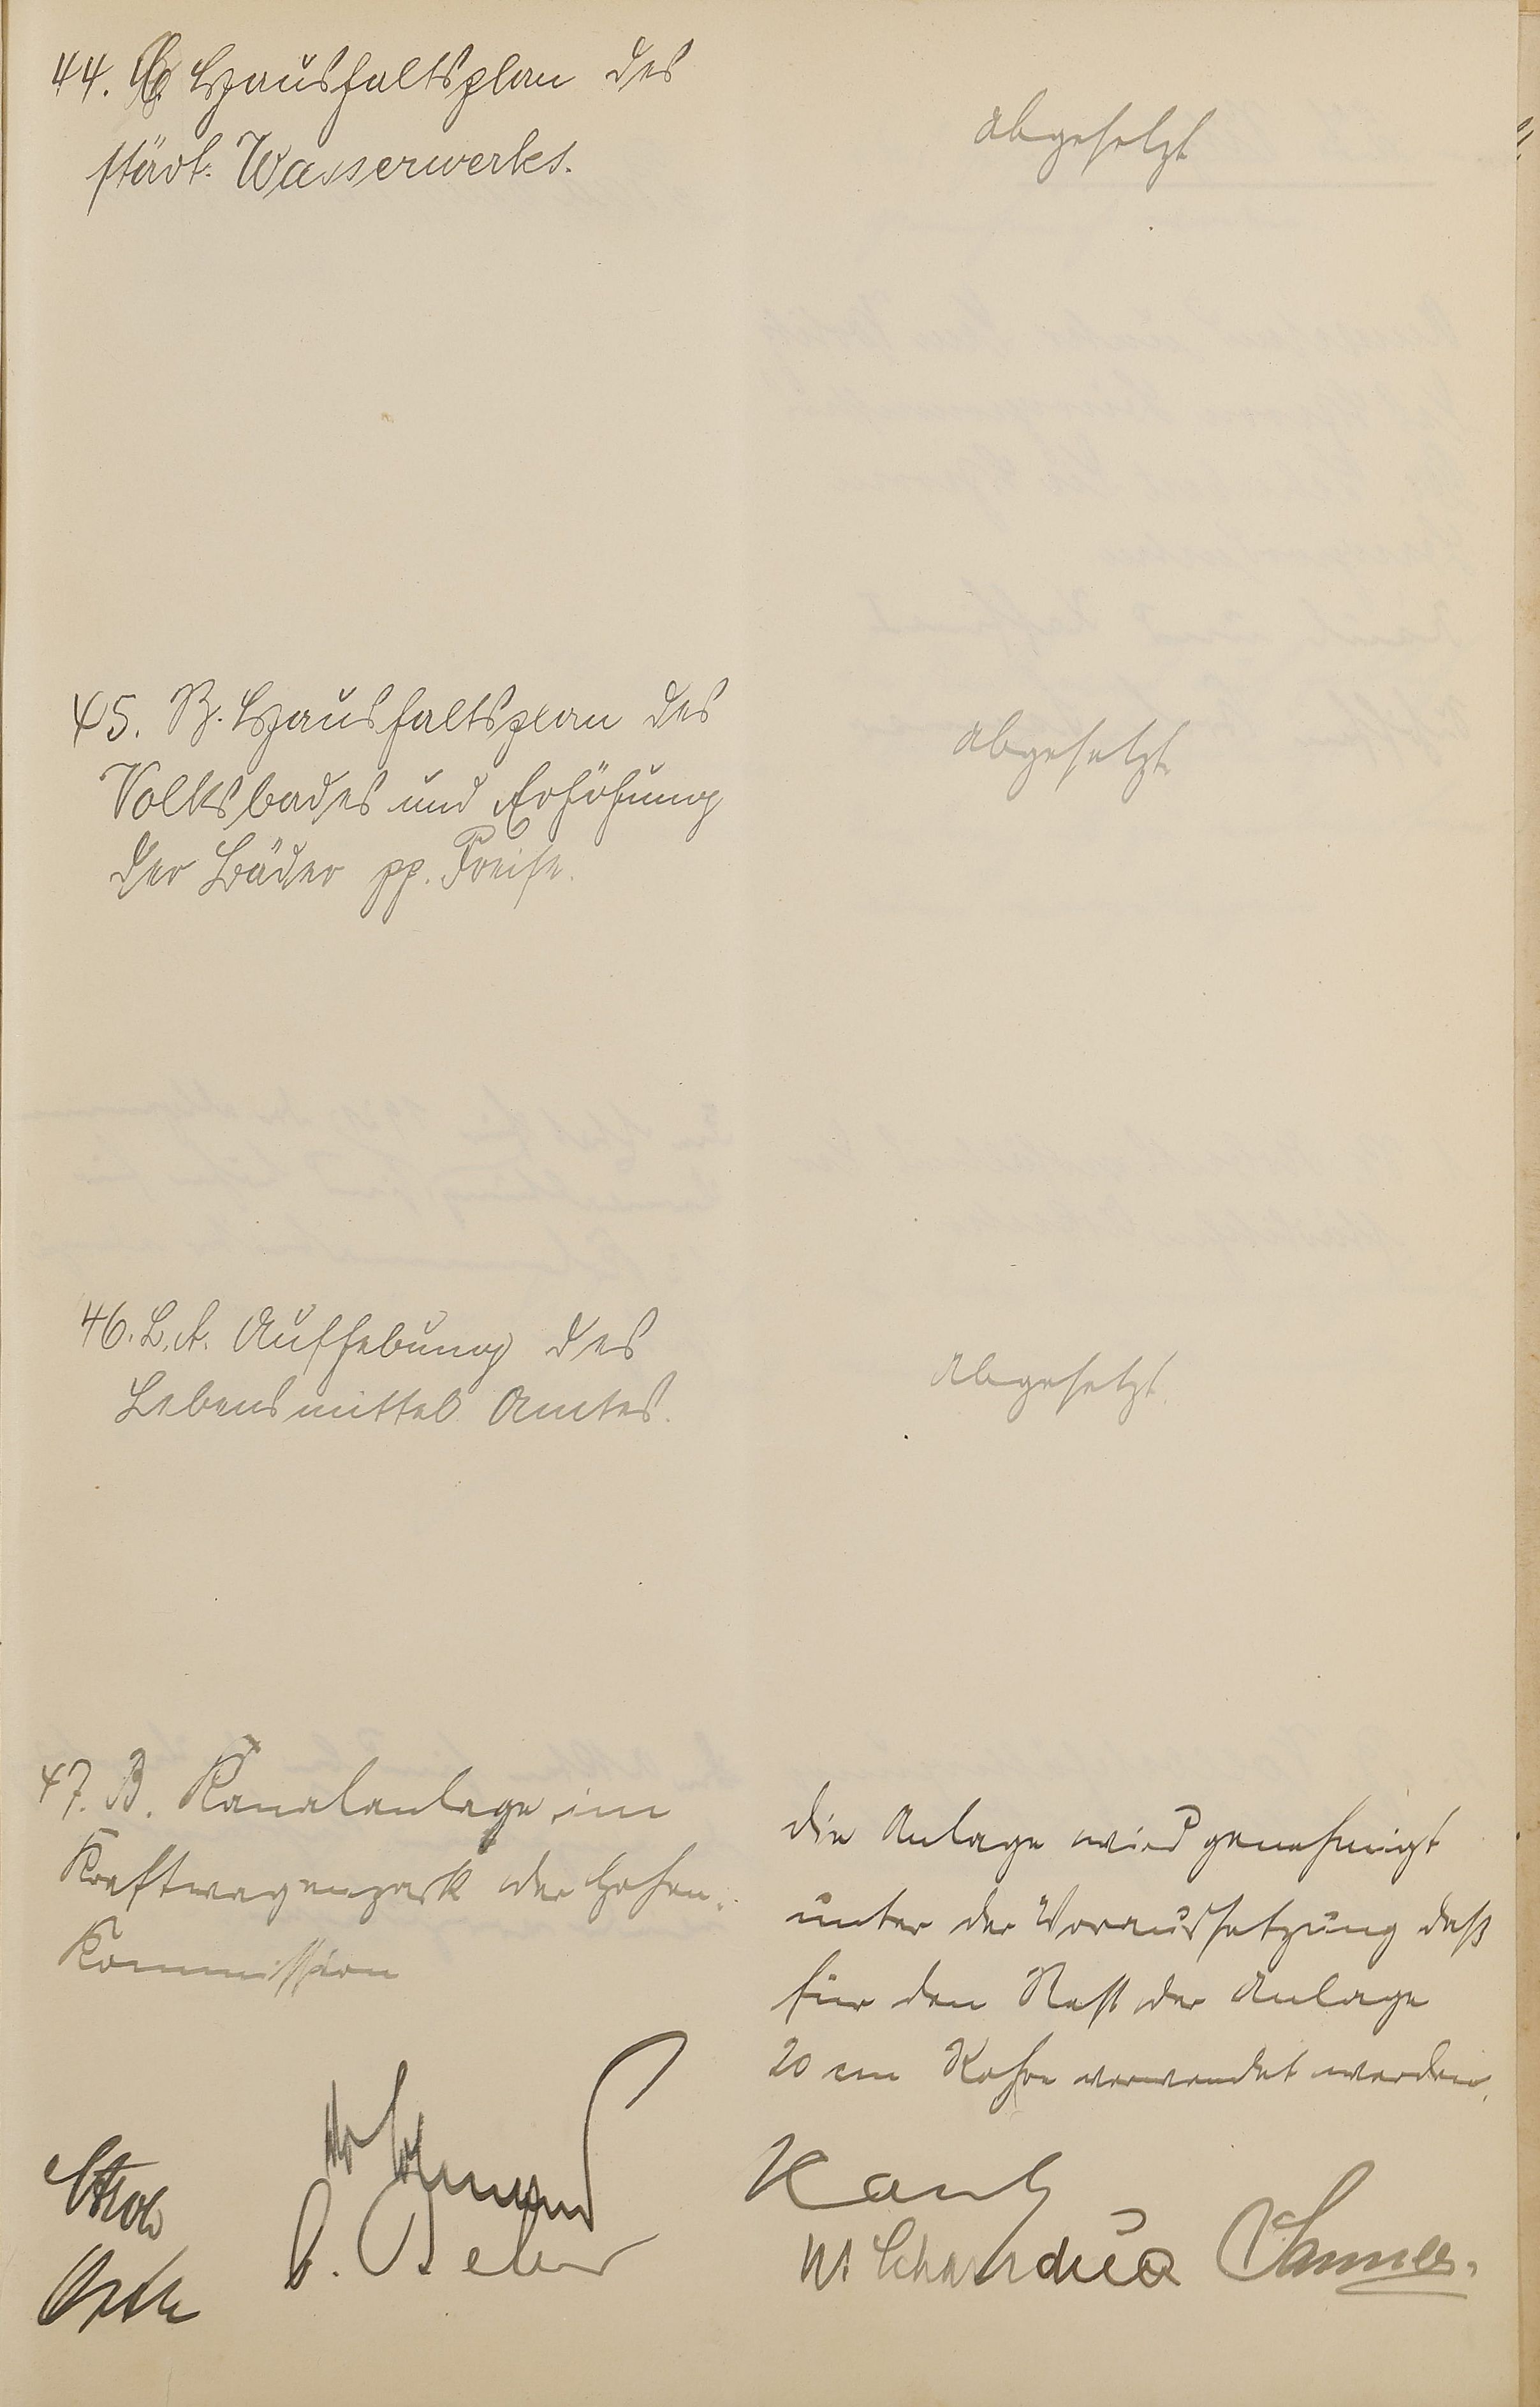 44. Haushaltsplan des
städt. Wasserwerkes.
abgesetzt
45. B. Haushaltsplan des
Volksbades und Erhöhung
der Bäder pp. Preise.
abgesetzt.
46. L. A. Aufhebung des
Lebensmittel Amtes.
abgesetzt.
47. B. Kanalanlage im
Kraftwagenpark der
Kommission
die Anlage wird genehmigt
unter der Voraussetzung daß
für den Rest der Anlage
20 cm Rohre verwendet werden.